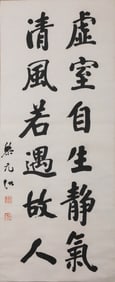 虛室自生靜氣
清風若遇故人